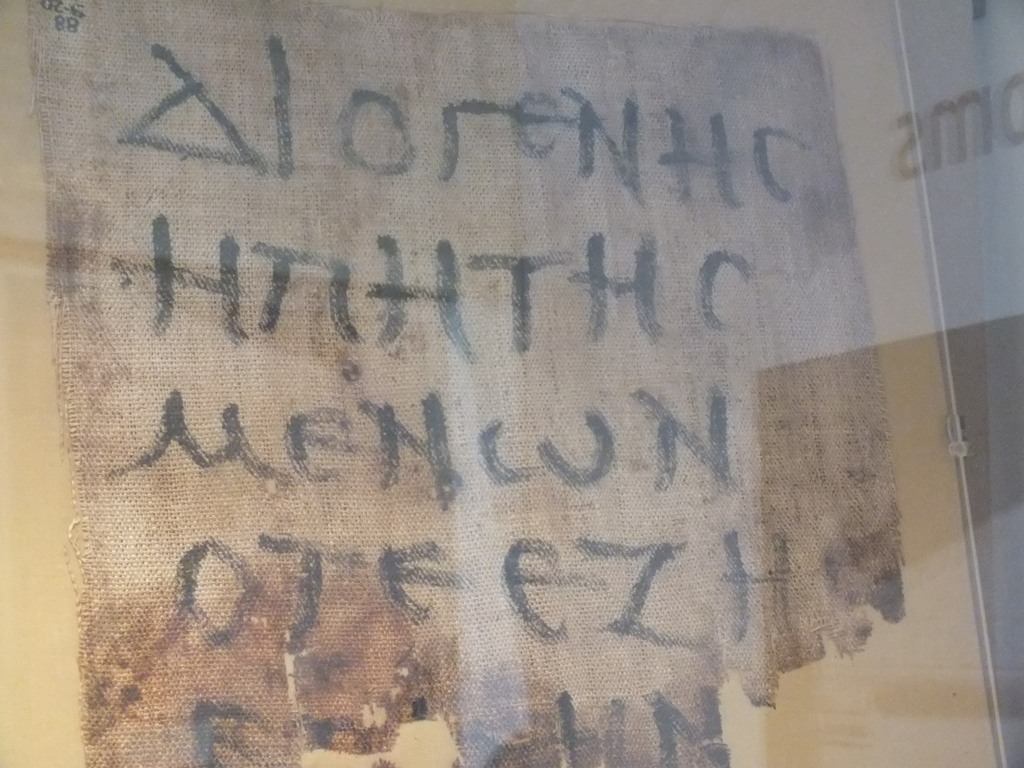 ΔΙΟΓΕΝΗC
ΗΠΗΤΗC
ΜΕΝωΝ
ΟΤΕΕΖΗ